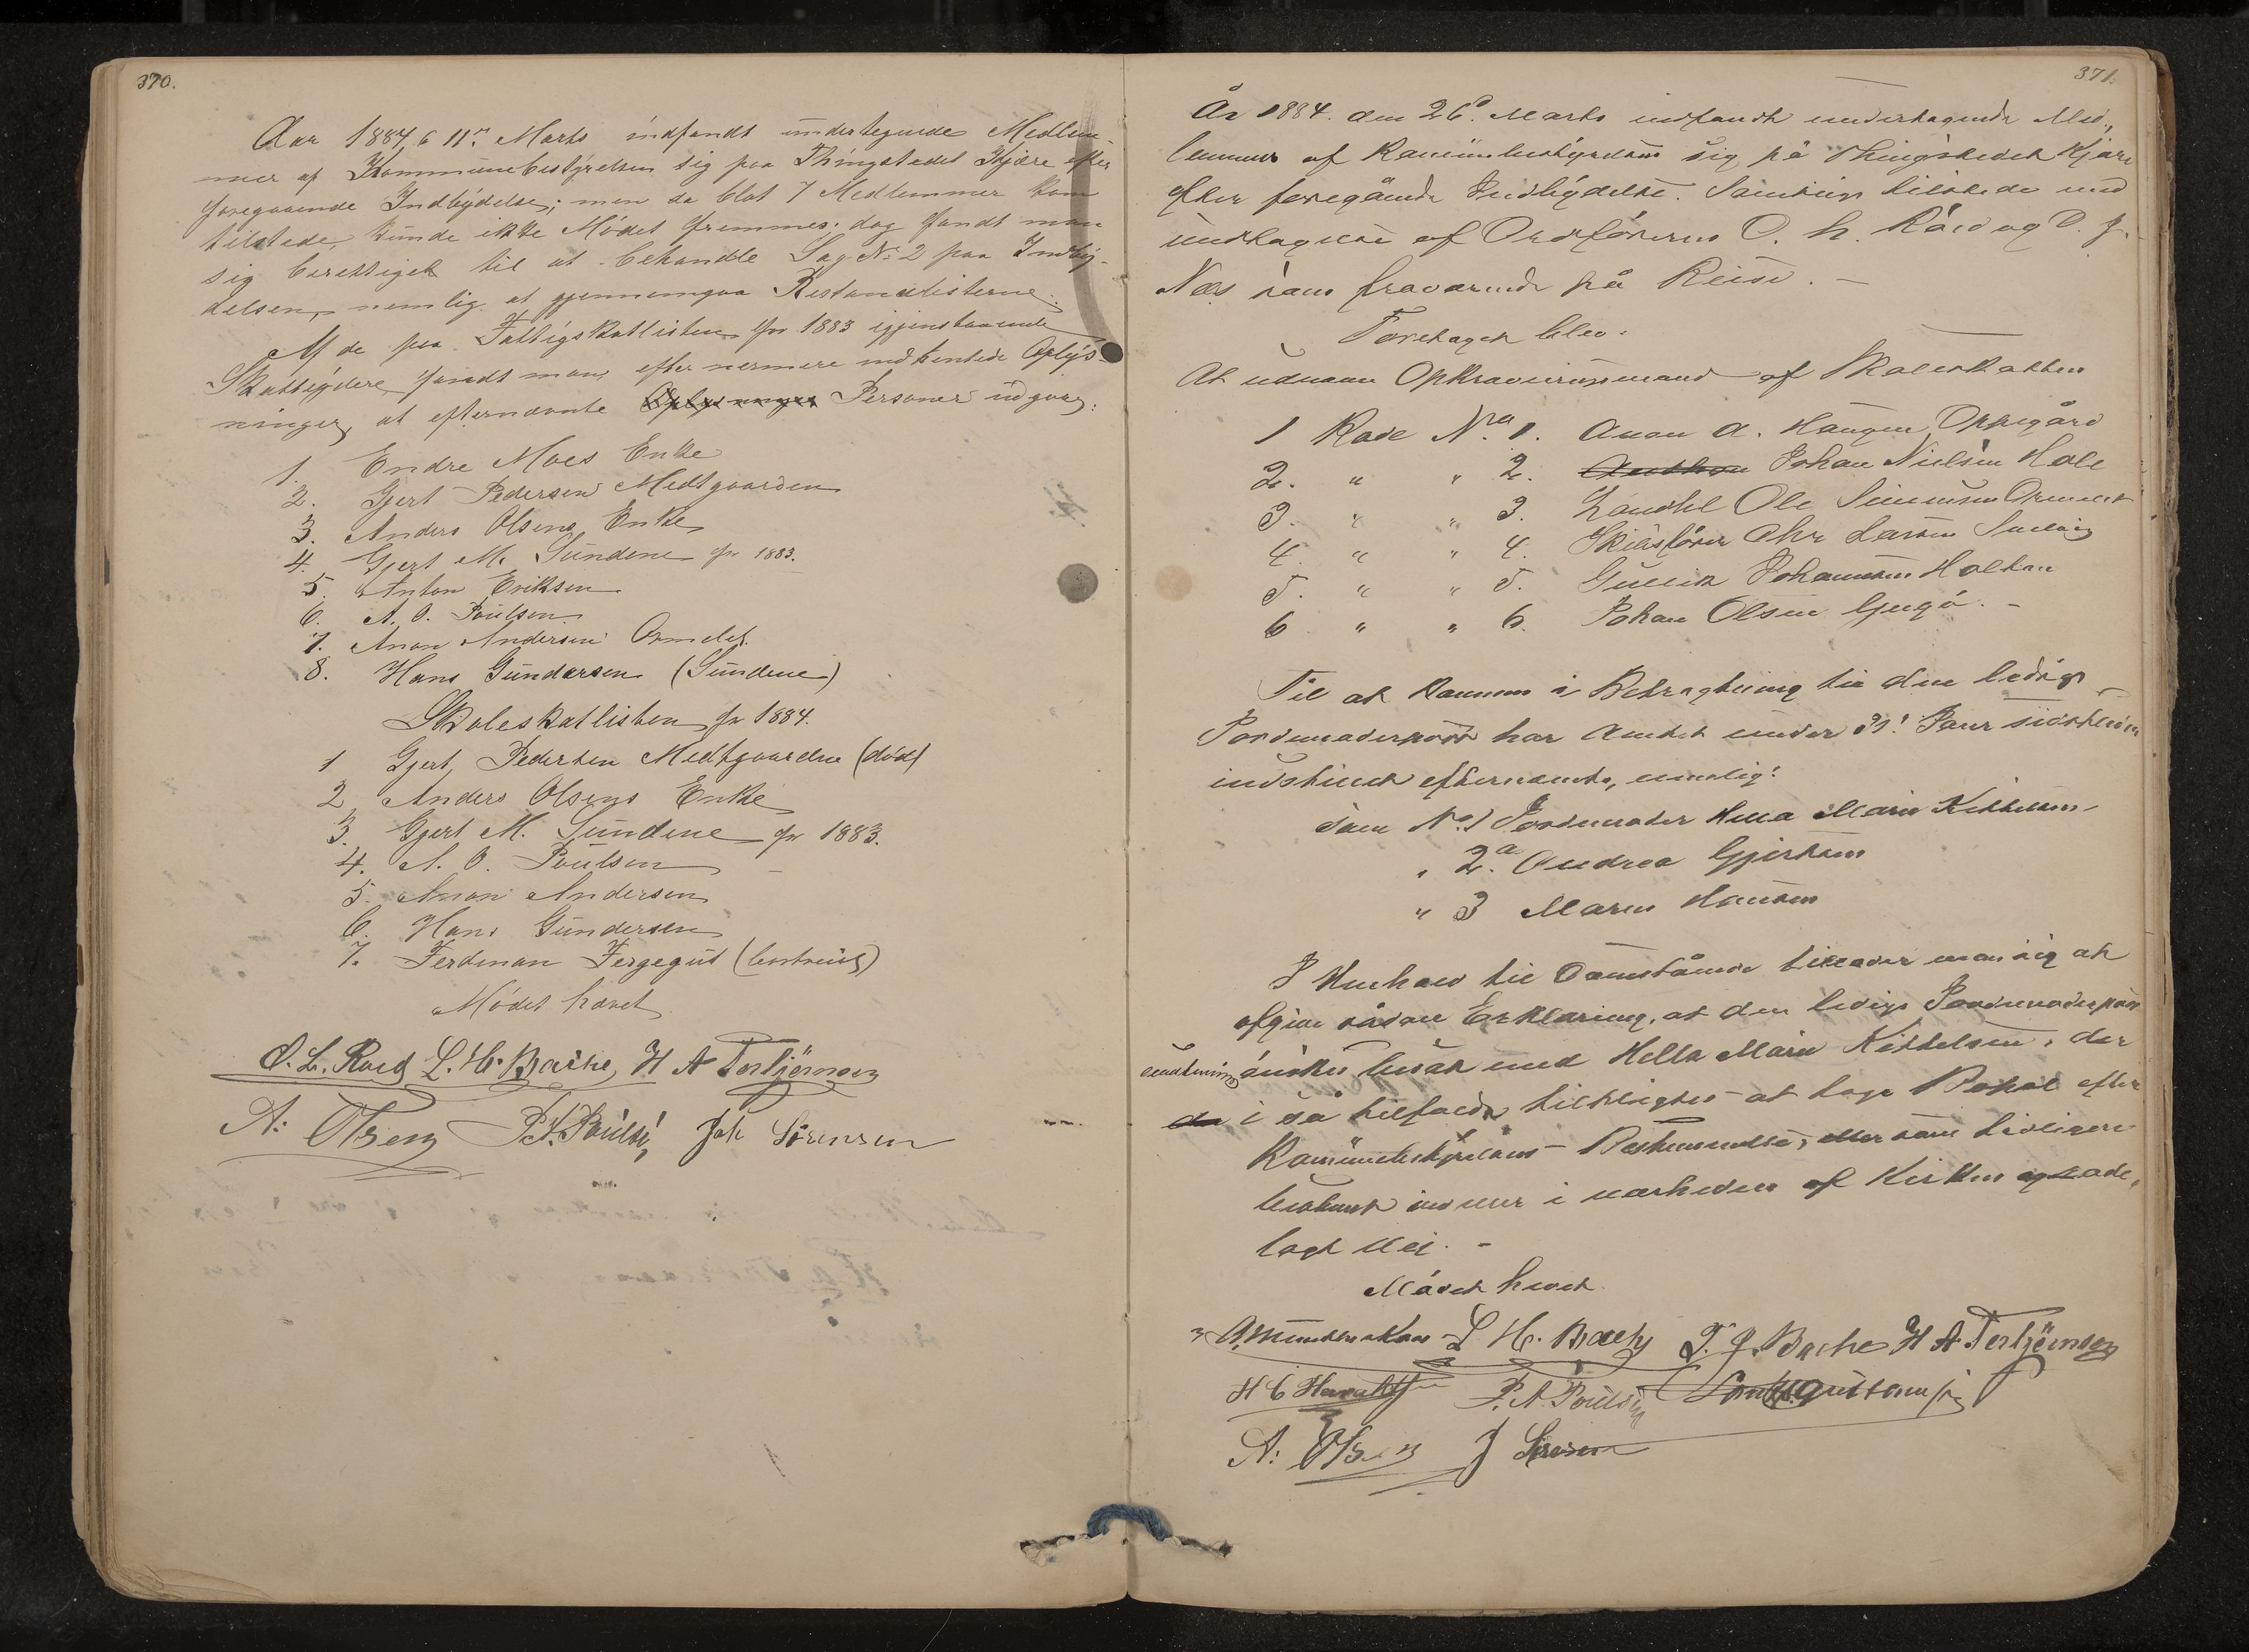 370.
Aar 1884, 6 11te Marts indfandt undertegnede Medlem-
mer af Kommunebestyrelsen sig paa Thingstedet Kjære efter
foregaaende Indbydelse; men da blot 7 Medlemmer kom
tilstede, kunde ikke Mødet fremmes; dog fandt man
sig berettiget til at behandle Sag No 2 paa Indby-
delsen, nemlig at gjennemgaa Restancelisterne.
Af de paa Fattigskatlisten for 1883 igjenstaaende
Skatteydere fandt man efter nermere indhentede Oplys-
ninger, at efternævnte Personer udgaar:
1. Endre Moes Enke
2. Gjert Pedersen Medtgaarden
3. Anders Olsens Enke
4. Gjert M. Sundene for 1883.
5. Anton Eriksen
6. A. O. Poulsen
7. Anon Andersen Ormelet
8. Hans Gundersen (Sundene)
Skoleskatlisten for 1884.
1 Gjert Pedersen Medtgaarden (død)
2 Anders Olsens Enke
3. Gjert M. Sundene for 1883.
4. A. O. Poulsen
5. Anon Andersen
6. Hans Gundersen
7. Ferdinan Fergegut (bortreist)
Mødet hævet
O. L. Røed L. H. Bache, H A Torbjörnsen
A: Olsen P. A. Poulsen Joh Sörensen
371.
År 1884. den 26d Marts indfandt undertegnede Med-
lemmer af Kommunebestyrelsen sig på Thingstedet Kjære
efter foregående Indbydelse. Samtlige tilstede med
undtagelse af Ordføreren O. L. Röed og
Næs som fraværende på Reise. -
Foretaget blev:
At udnævne Opkrævningsmænd af Skoleskatten
1 Rode No 1. Anon A. Haugen Oppegård
2. " " 2. Johan Nielsen Hole
3. " " 3. Landhl Ole Simensen Ormelet
4. " " 4. Skibsfører Chr Larsen
5. " " 5. Gullik Johannesen Holtan
6 " " 6. Johan Olsen Gjengö. -
Til at komme i Betragtning til den ledige
Jordemoderpost har Amtet under 31. Janr sidstleden
indstillet efternævnte, nemlig:
som No 1 Jordemoder Helle Marie Kittelsen
" 2. Andrea Gjertsen
" 3 Maren Hansen
I Henhold til Ovenstående tillader man sig at
afgive sådan Erklæring, at den ledige Jordemoderpost
önskes besat med Helle Marie Kittelsen, der
i så tilfælde tilpligtes at tage Bopæl efter
Kommunebestyrelsens Bestemmelse, eller som tidligere
bestemt inden i nærheden af Kirken og
lagt Vei. -
Mødet hævet
L H. Bache T. J. Bache H A Torbjörnsen
P. A. Poulsen
A: Olsen J Sörensen